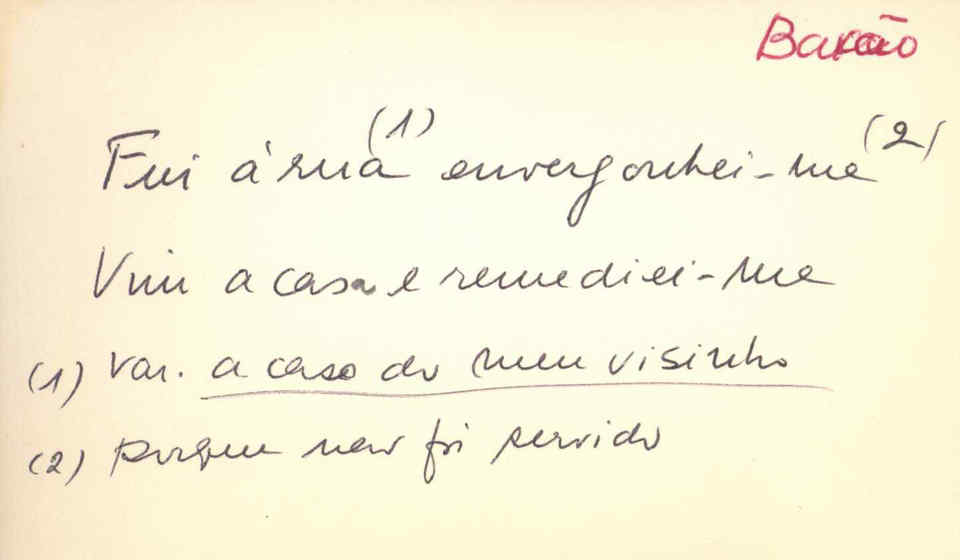 Barão
Fui á rua (1) envergonhei-me (2)
Vim a casa e remediei-me
(1) Var. a casa do meu visinho
(2) porque não foi servido